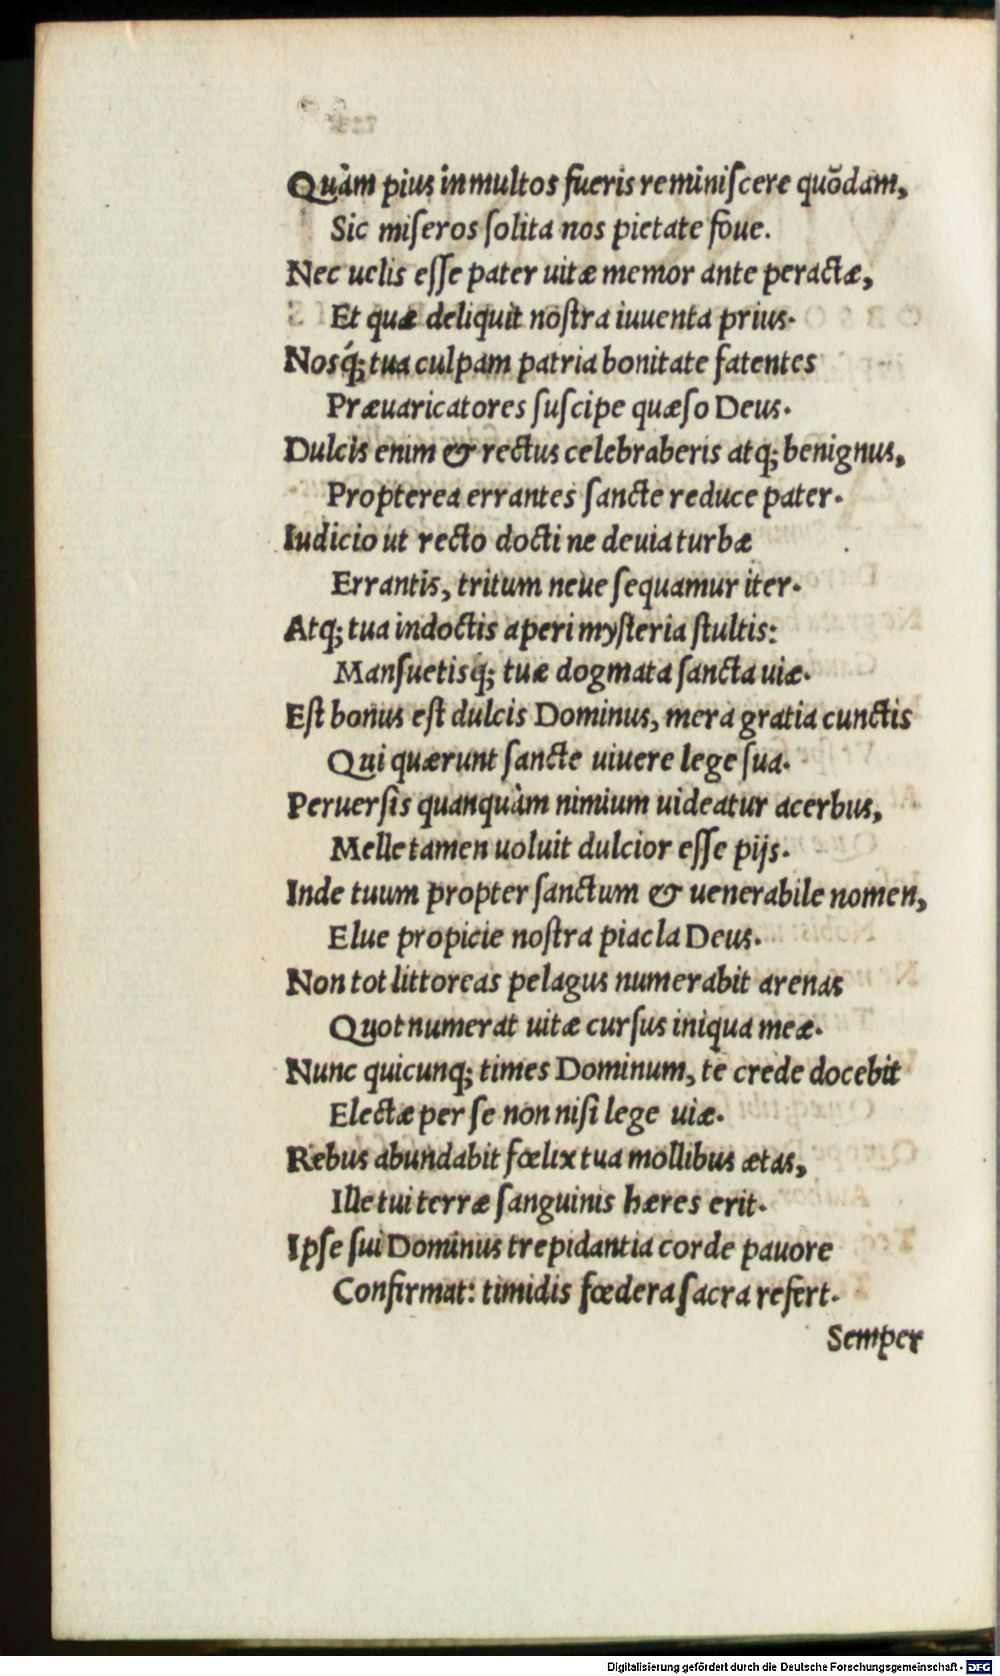 Quàm pius in multos fueris reminiſcere quōdam,
Sic miſeros ſolita nos pietate foue.
Nec uelis eſſe pater uitæ memor ante peractæ,
Et quæ deliquit noſtra iuuenta prius.
Nosq́; tua culpam patria bonitate fatentes
Præuaricatores ſuſcipe quæſo Deus.
Dulcis enim & rectus celebraberis atq; benignus,
Propterea errantes ſancte reduce pater.
Iudicio ut recto docti ne deuia turbæ
Errantis, tritum neue ſequamur iter.
Atq; tua indoctis aperi myſteria ſtultis:
Manſuetisq́; tuæ dogmata ſancta uiæ.
Eſt bonus eſt dulcis Dominus, mera gratia cunctis
Qui quærunt ſancte uiuere lege ſua.
Peruerſis quanquàm nimium uideatur acerbus,
Melle tamen uoluit dulcior eſſe pijs.
Inde tuum propter ſanctum & uenerabile nomen,
Elue propicie noſtra piacla Deus.
Non tot littoreas pelagus numerabit arenas
Quot numerat uitæ curſus iniqua meæ.
Nunc quicunq; times Dominum, te crede docebit
Electæ per ſe non niſi lege uiæ.
Rebus abundabit fœlix tua mollibus ætas,
Ille tui terræ ſanguinis hæres erit.
Ipſe ſui Dominus trepidantia corde pauore
Confirmat: timidis fœdera ſacra refert.
Semper
Digitalisierung gefördert durch die Deutsche Forschungsgemeinschaft - DFG